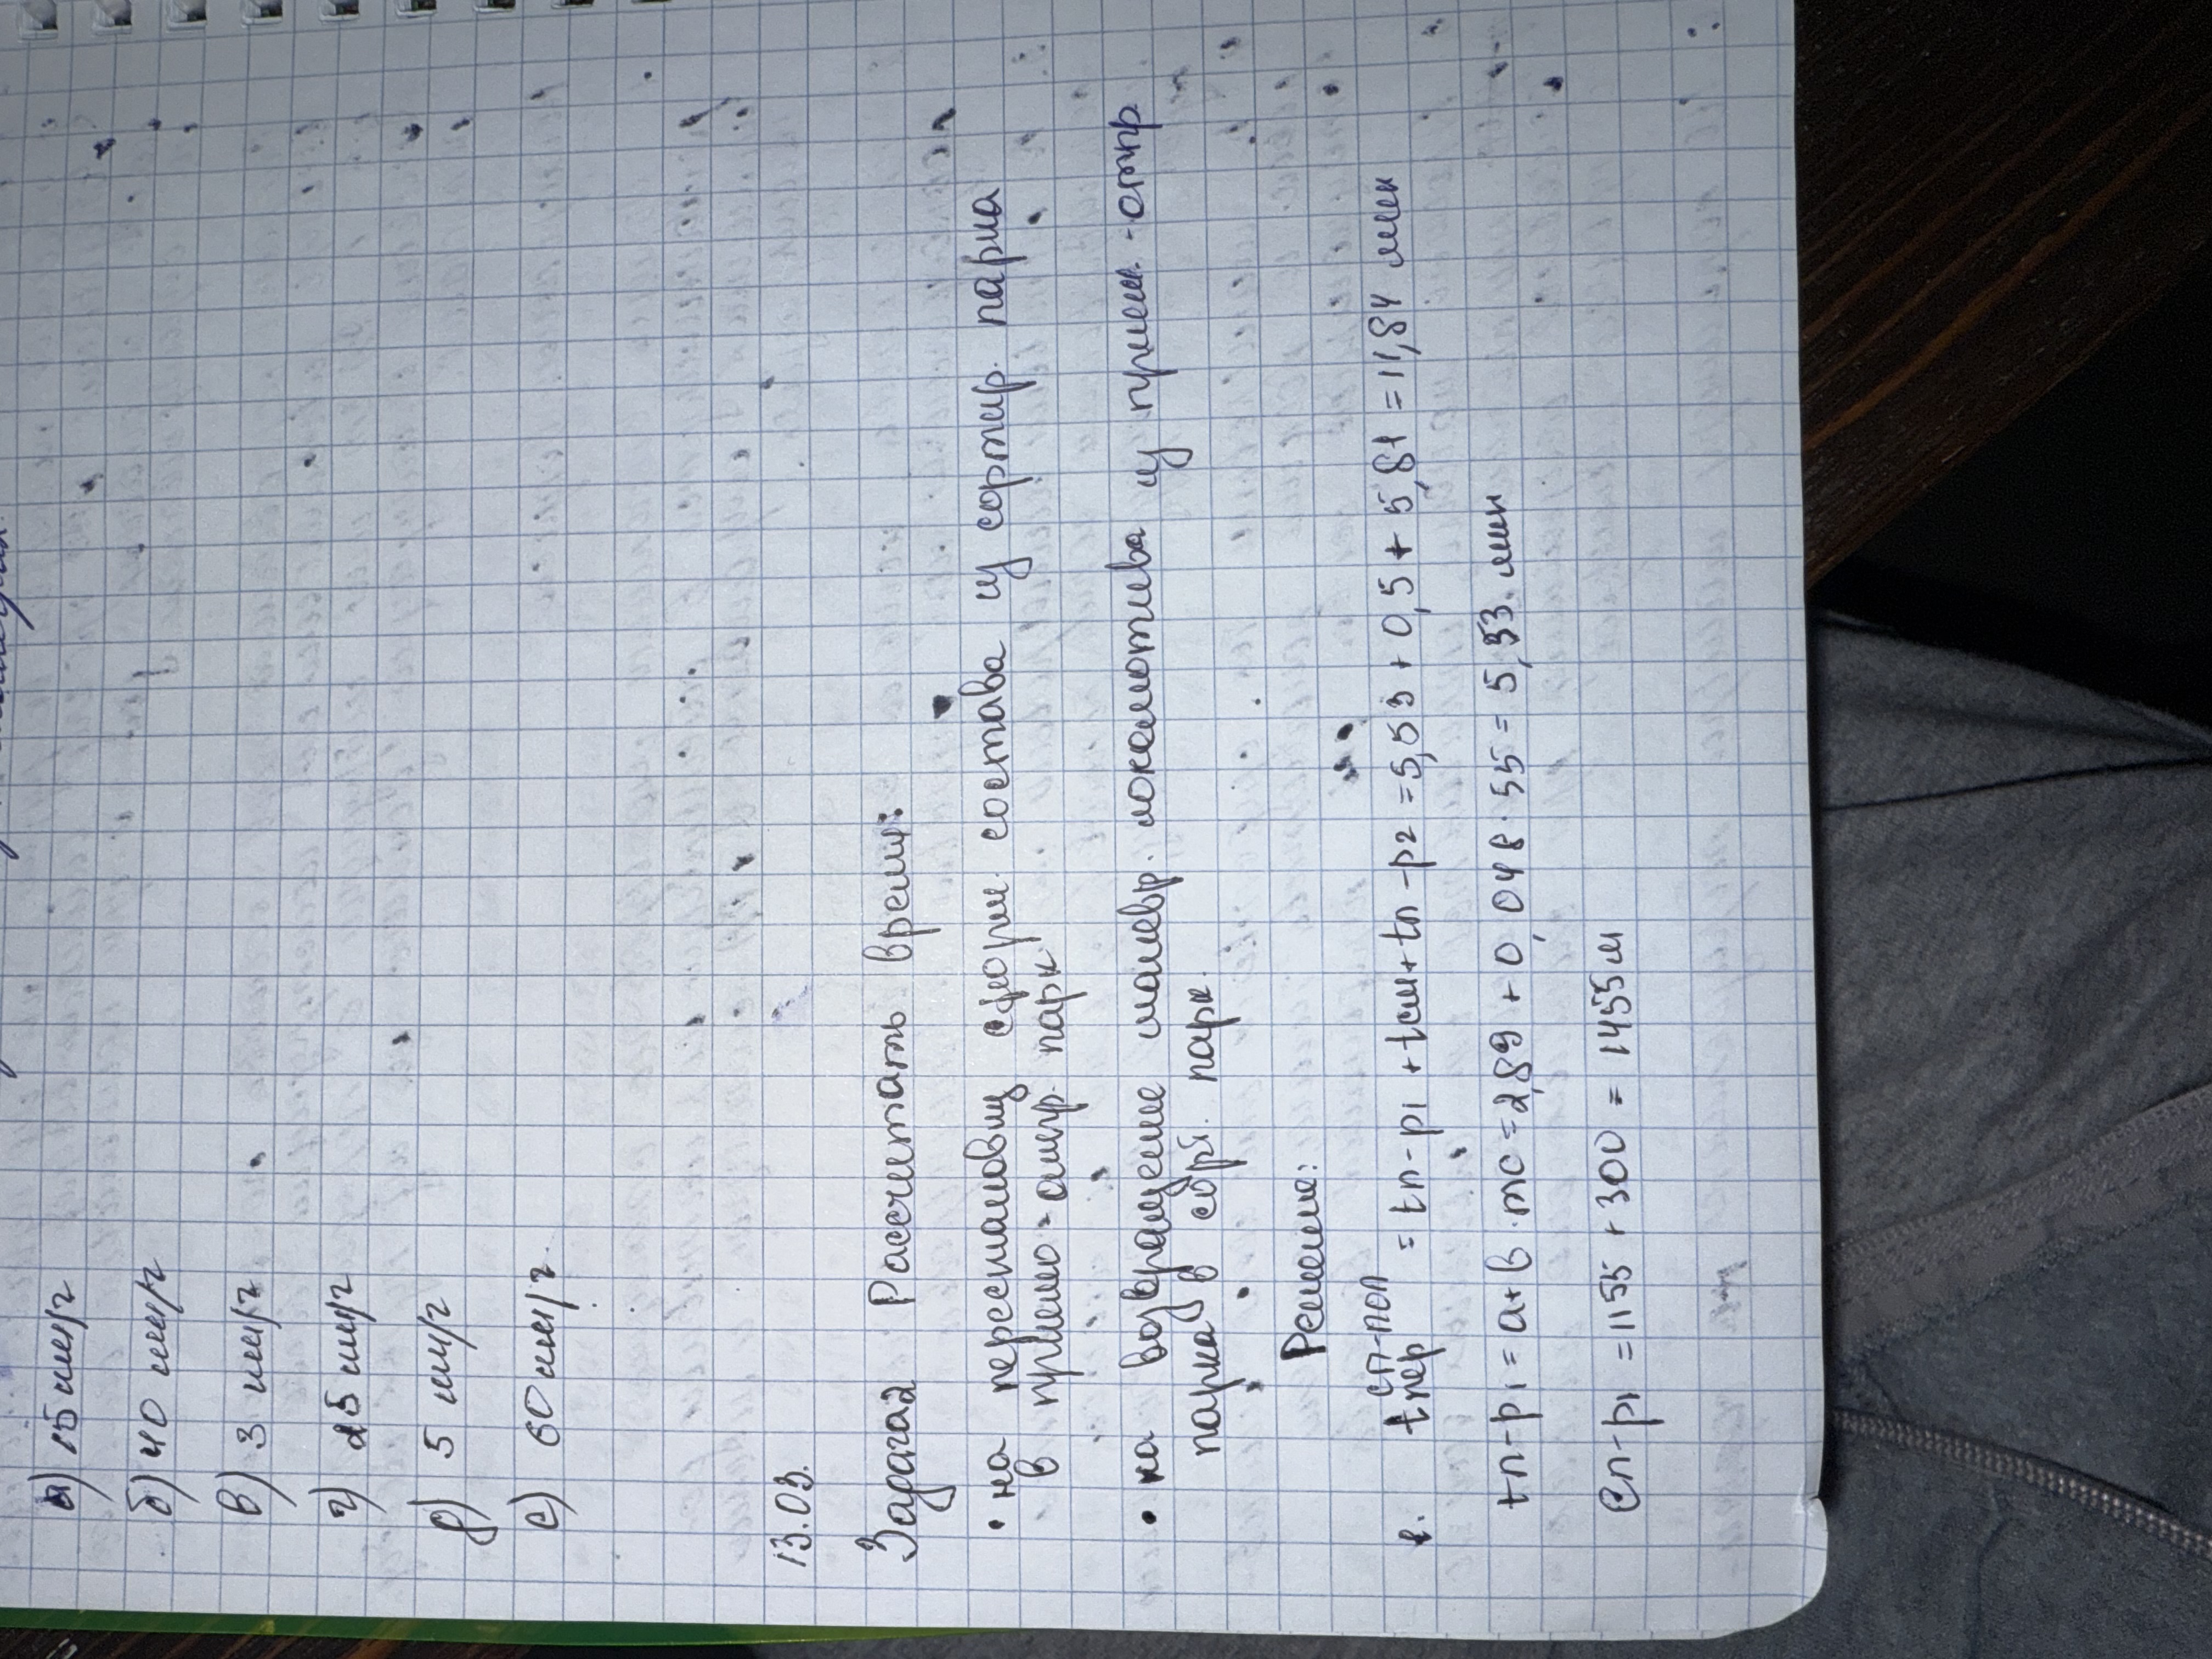 а) 15 мин/г
б) 40 мин/г
в) 3 мин/г
г) 25 мин/г
д) 5 мин/г
е) 60 мин/г.
13.03.
Задача2 Рассчетать время:
• на перестановку сформ. состава из сортир. парка
в приемо-отпр. парк
• на возвращение маневр. локомотива из прием.-отпр
парка в сорт. парк.
Решение:
1. tпер сп-поп = tп-р1 + tсм + tп-р2 = 5,53 + 0,5 + 5,81 = 11,84 мин
tп-р1 = a+b·mc = 2,89 + 0,048·55 = 5,53. мин
ℓп-р1 = 1155 + 300 = 1455м